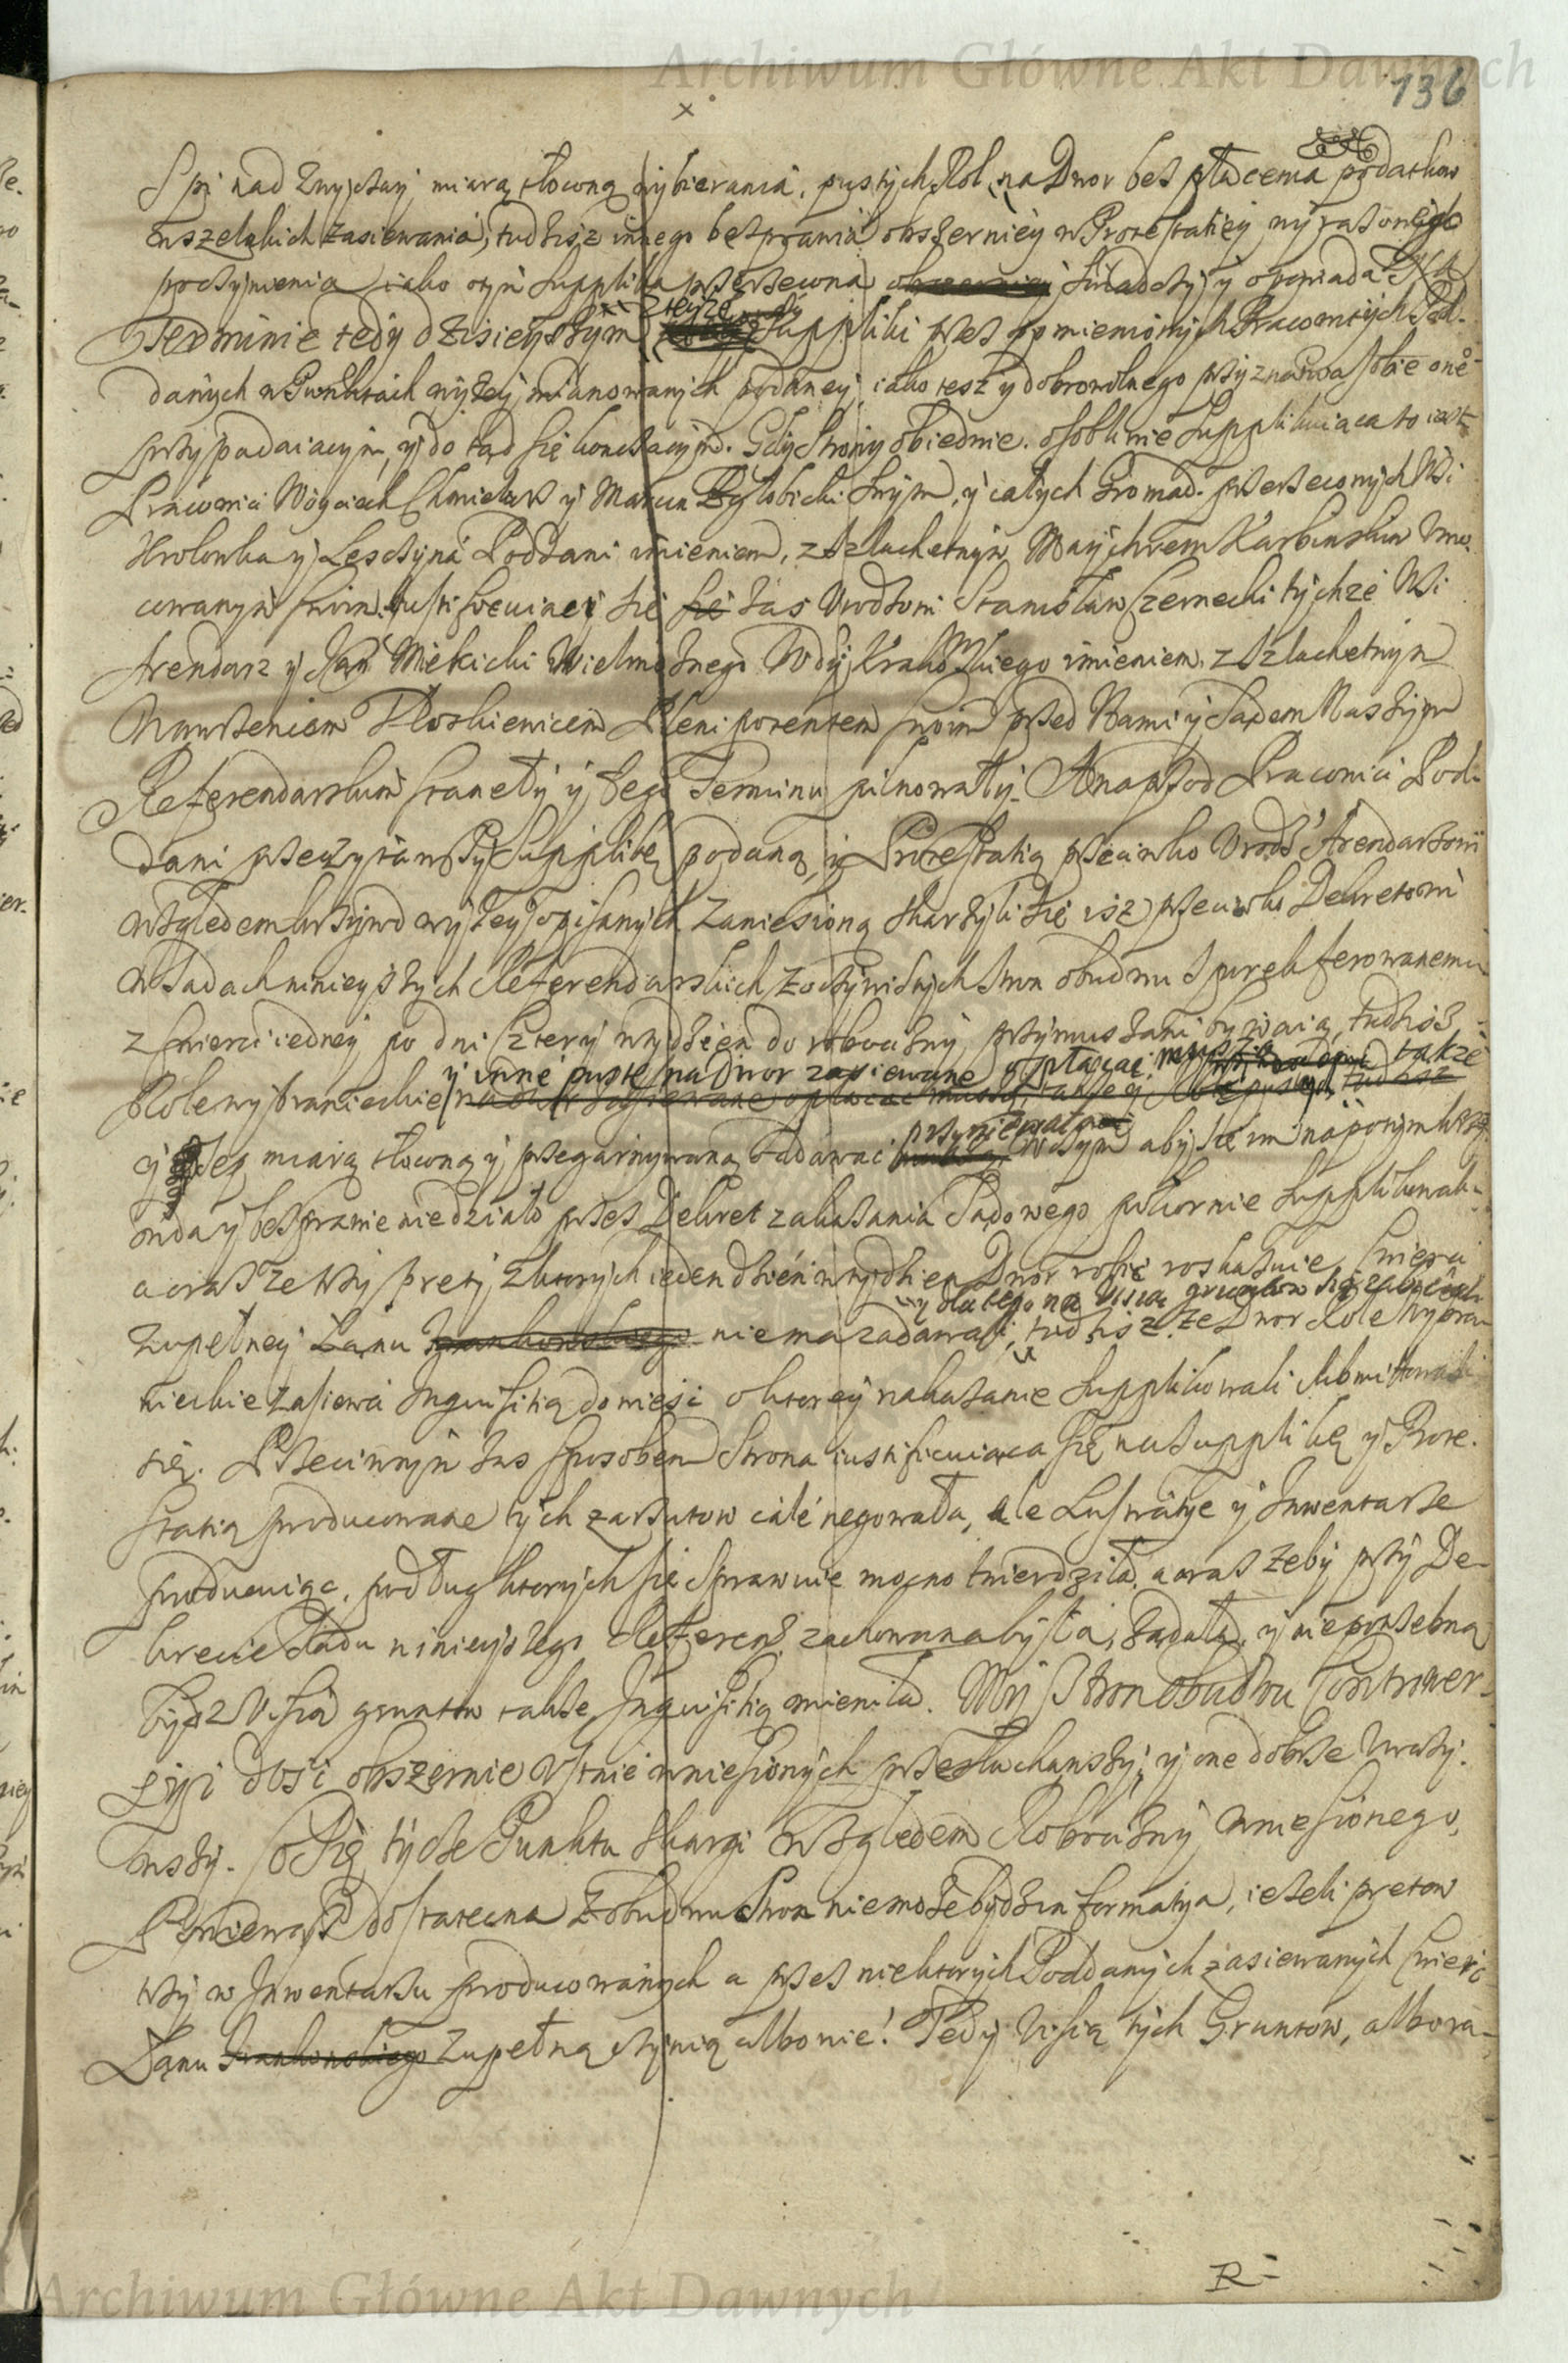 Archiwum Główne Akt Dawnych
136
Spi nad zwyczay miarą tłoczną wybierania, pustych Rol na Dwor bez płacenia podatkow
wszelakich zasiewania, tudzisz innego bezprawia obszerniey w Protestatiey wyrazonego
poczynienia iako oney Supplika przerzeczona swiadczy y opowiada
Terminie tedy dzisieyszym z teyże Suppliki przez pomienionych Pracowitych Pod-
danych w Punktach wyżey mianowanych podaney, iako tesz y dobrowolnego przyznawa sobie one
przypadaiącym, y do tąd się konczącym. Gdy Strony obiedwie. osobliwie Supplikuiąca to iest
Pracowici Woyciech Chmielarz y Marcin swym, y całych Gromad. przerzeconych Wsi
Krolowka y Lesczyna Poddani imieniem, z Szlachetnym Maychrem Karbinskim Umo-
cowanym swoim. Iustificuiącey się się zas Urodzoni Stanisław Czernecki tychże Wsi
Arendarz y Jan Miekicki Wielmożnego Wdy Krakowskiego imieniem, z Szlachetnym
Wawrzencem Pleniporentem swoim przed Nami y Sądem Naszym
Referendarskim stanęły y tego Terminu pilnowały. A naprzod Pracowici Pod-
dani przeczytawszy Supplikę podaną, y Protestatią przeciwko Urodz Arendarzowi
względem krzywd wyżey opisanych zaniesioną skarżyli się isz przeciwko Dekretowi
w Sądach ninieyszych Referendarskich z oczywistych stron obudwu Sporek ferowanemu
z cwierci iedney po dni cztery w tydzien do robocizny przymuszani bywaią, tudzisz
y inne puste na Dwor zasiewane opłacać muszą także
Role wybranieckie
y miarą tłoczną y przegarnywaną oddawac w czym aby się im napotym krzy-
wda y bezprawie niedziało przez Dekret zakazania Sądowego pokornie Supplikowali
a oraz ze trzy pręty z ktorych ieden dzień w tydzien Dwor robić roskazuie, cwierci
y dla tego na Visią gruntow się zabierali
zupełney Łanu niema zadawali, tudzisz ze Dwor Role wybra-
nieckie zasiewa Inquisitią doniesc o ktorey nakazanie Supplikowali submittowali
się. Przeciwnym zas sposobem Strona iustificuiąca się na Supplikę y Prote-
statią producowane tych zarzutow cale negowała, ale Lustratye y Inwentarze
producuiąc, podług ktorych się sprawuie mocno twierdziła, a oraz zeby przy De-
krecie Sądu ninieyszego Referens. zachowana była, ządała, y niepotrzebną
bydz Visią gruntow także Inquisitią mieniła. My Stron obudwu Contrower-
syi dosc obszernie ustnie wniesionych przesłuchawszy, y one dobrze uważy-
wszy. Co się tycze Punktu skargi względem Robocizny wniesionego,
Ponieważ dostateczna z obudwu stron niemoże bydz informatya, ieżeli prętow
trzy w Inwentarzu producowanych a przez niektorych Poddanych zasiewanych cwierć
Łanu Frankonskiego zupełną czynią albo nie! Tedy Visią tych Gruntow, albo ra-
R-
Archiwum Główne Akt Dawnych